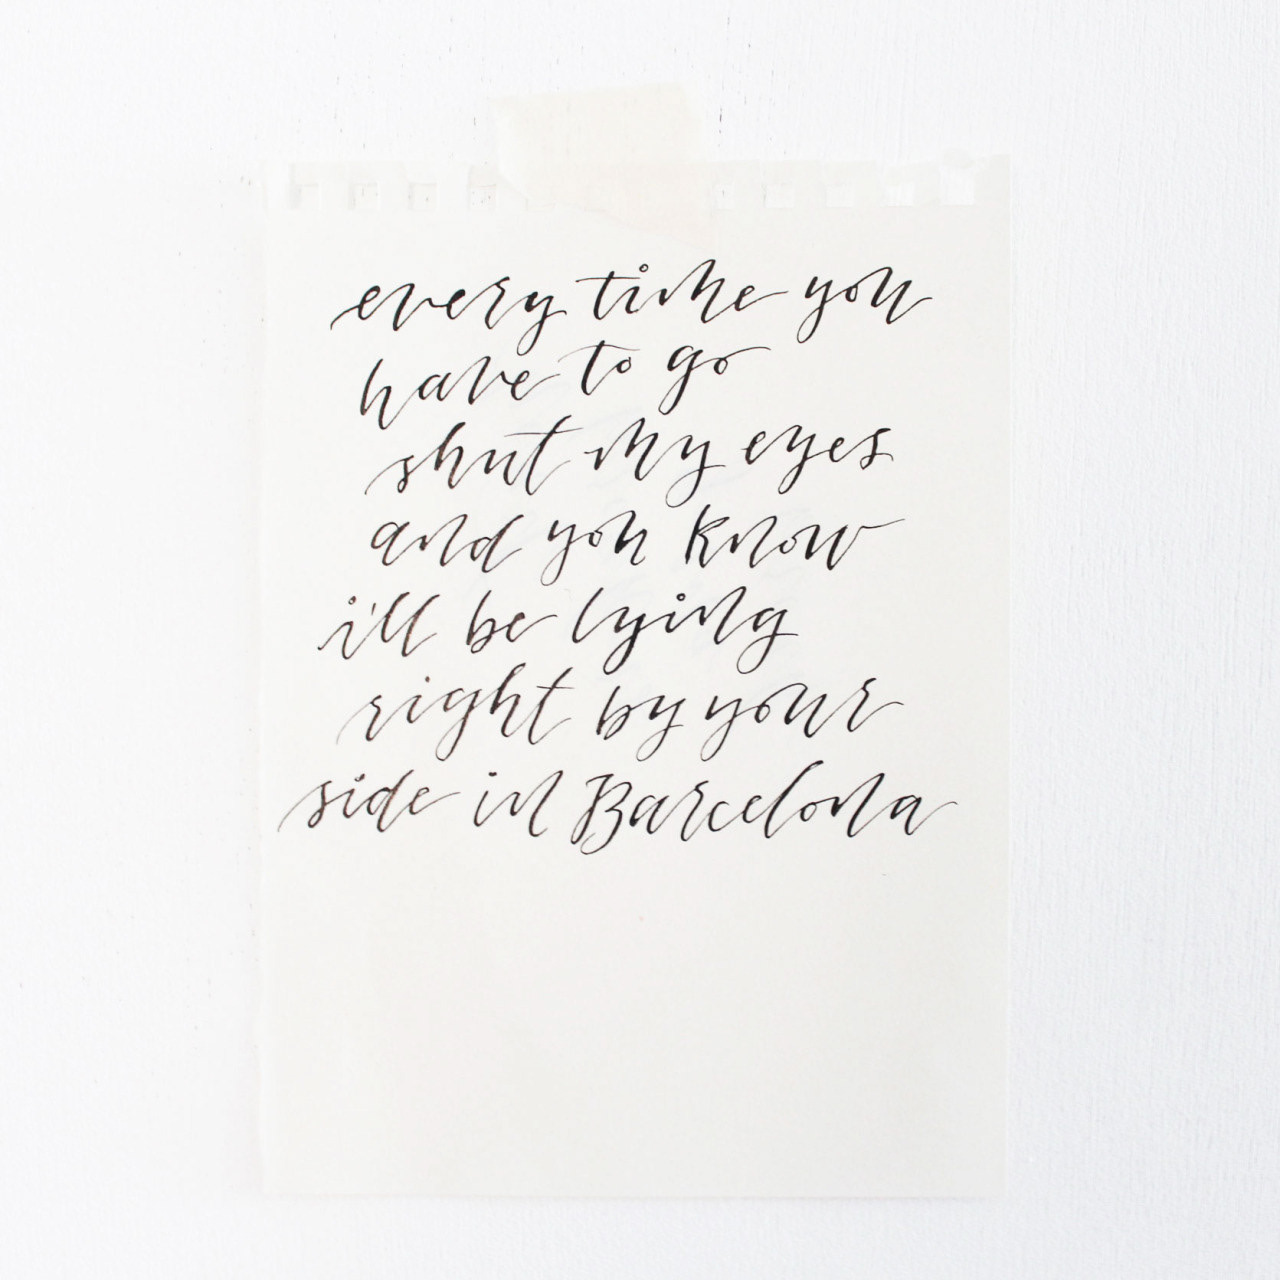 every time you
have to go
shut my eyes
and you know
i'll be lying
right by your
side in Barcelona